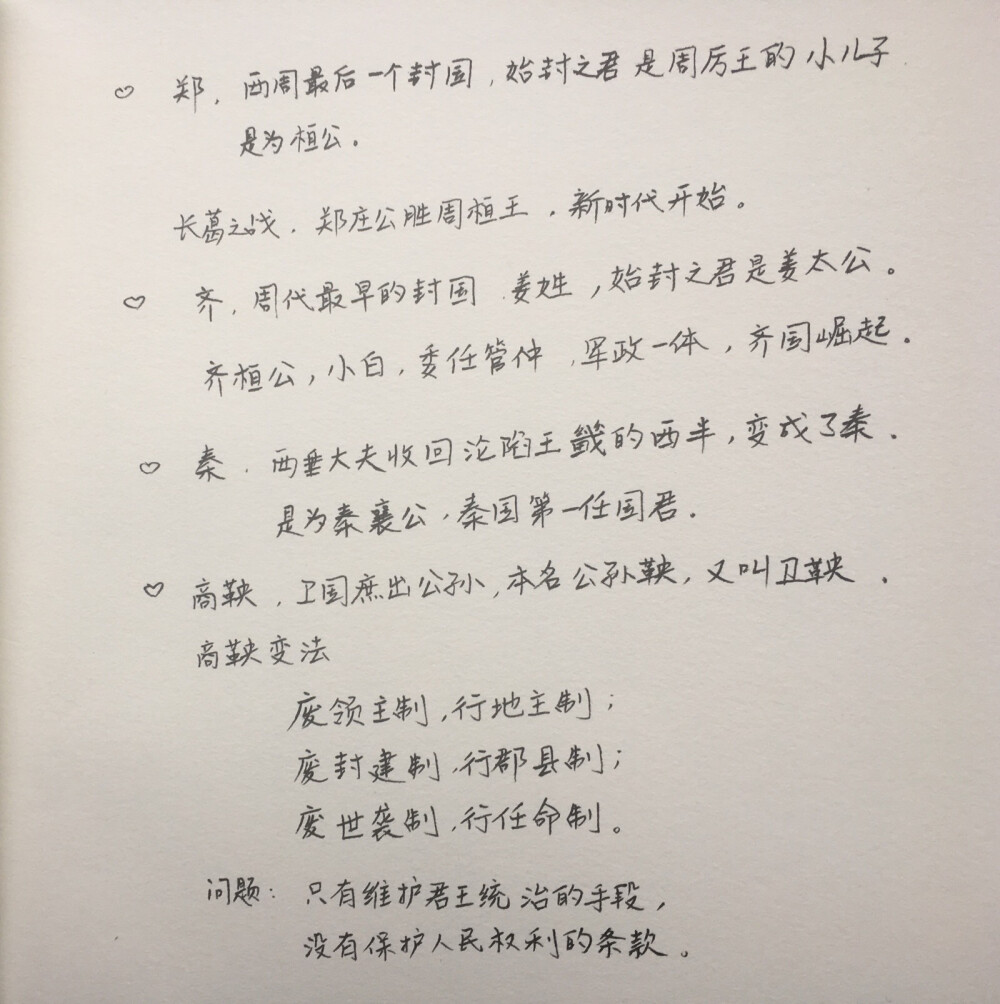 ♡ 郑，西周最后一个封国，始封之君是周厉王的小儿子
是为桓公。
长葛之战，郑庄公胜周桓王，新时代开始。
♡ 齐，周代最早的封国，姜姓，始封之君是姜太公。
齐桓公，小白，委任管仲，军政一体，齐国崛起。
♡ 秦，西垂大夫收回沦陷王畿的西半，变成了秦．
是为秦襄公，秦国第一任国君．
♡ 商鞅，卫国庶出公孙，本名公孙鞅，又叫卫鞅．
商鞅变法
废领主制，行地主制；
废封建制，行郡县制；
废世袭制，行任命制。
问题：只有维护君王统治的手段，
没有保护人民权利的条款。